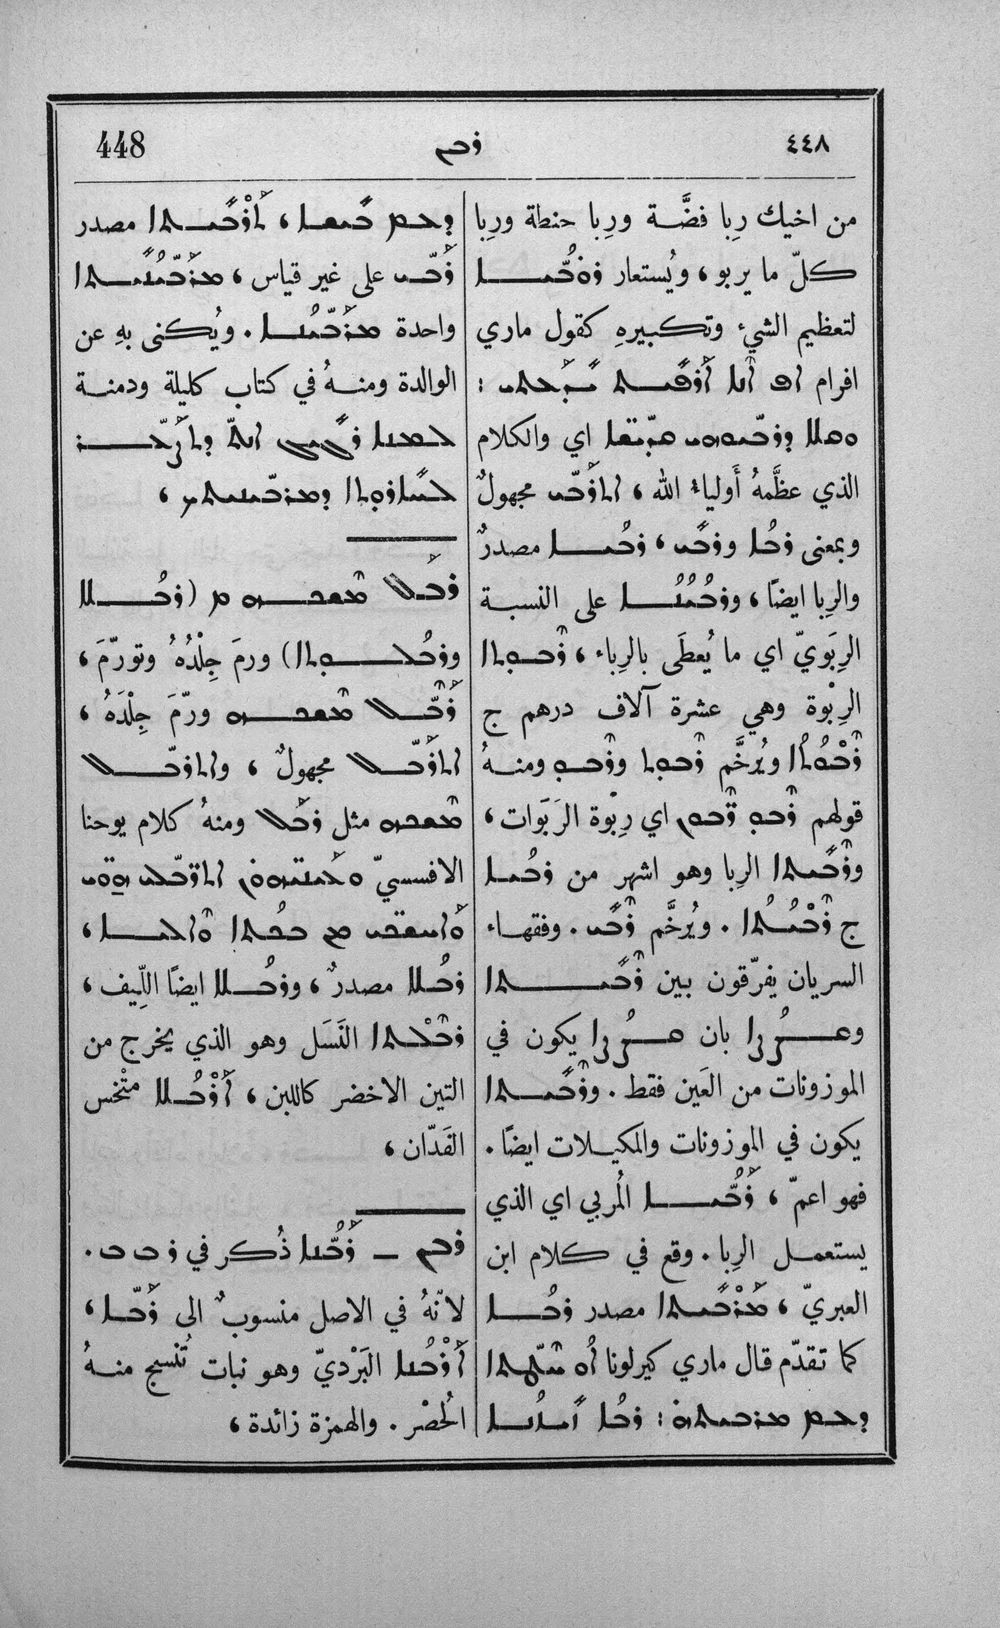 ٤٤٨ ܪܒܢ 448
من اخيك رِبا فضَّة ورِبا حنطة ورِبا
كلّ ما يربو، ويُستعار ܪܘܪܒܝܐ
لتعظيم الشيء وتكبيرهِ كقول ماري
افرام ܐܦ ܐܢܐ
ܘܡܠܐ ܕܪܒܝܘܗܝ ܩܕܝܫܐ اي والكلام
الذي عظَّمهُ أَولياء الله، ܐܬܪܒܝ مجهولٌ
وبمعنى ܪܒܐ ܘܪܒܝ، ܪܒܝܐ مصدرٌ
والرِبا ايضًا، ܘܪܒܝܝܐ على النسبة
الرِبَويّ اي ما يُعطَى بالرِباء، ܪܒܘܬܐ
الرِبْوة وهي عشرة آلاف درهم ج
ܪܒܘܬܐ ويُرخَّم ܪܒܘܬ ܘܪܒܘ ومنهُ
قولهم ܪܒܘ ܪܒܘܢ اي رِبْوة الرَبَوات،
ܘܪܒܝܬܐ الرِبا وهو اشهر من ܪܒܝܐ
ج ܪܒܝܬܐ . ويُرخَّم ܪܒܝ . وفقهاء
السريان يفرّقون بين ܪܒܝܬܐ
بان يكون في
الموزونات من العَين فقط . ܘܪܒܝܬܐ
يكون في الموزونات والمكيلات ايضًا .
فهو اعمّ، ܪܒܝܐ المُربي اي الذي
يستعمل الرِبا . وقع في كلام ابن
العبريّ، ܡܪܒܝܬܐ مصدر ܪܒܐ
كما تقدّم قال ماري كيرلونا ܐܘ
ܕܒܟܠ ܡܪܒܝܬܗ : ܪܒܐ
ܕܒܟܠ، ܬܪܒܝܬܐ مصدر
ܪܒܝ على غير قياس، ܡܪܒܝܢܝܬܐ
واحدة ܡܪܒܝܢܐ . ويُكنى بهِ عن
الوالدة ومنهُ في كتاب كليلة ودمنة
ܠܡܢܐ
ܕܡܪܒܝܢܝܬܟ،
ܪܒܠ ܡ (ܪܒܠܐ
ܘܪܒܠܘܬܐ) ورمَ جِلْدُهُ وتورّمَ،
ܪܒܠ ورّمَ جِلْدَهُ،
ܐܬܪܒܠ مجهولٌ، ܘܐܬܪܒܠ
مثل ܪܒܠ ومنهُ كلام يوحنا
الافسسيّ
ܡܢ
ܪܒܠܐ مصدرٌ، ܘܪܒܠܐ ايضًا اللِّيف،
ܪܒܠܬܐ النَسَل وهو الذي يخرج من
التين الاخضر كاللبن، ܐܪܒܠܐ مِنْخس
القَدّان،
ܪܒܢ – ܪܒܢܐ ذُكر في ܪ ܒ ܒ .
لانّهُ في الاصل منسوبٌ الى ܪܒܐ،
ܐܪܒܢܐ البَرْديّ وهو نبات تُنسج منهُ
الحُصْر . والهمزة زائدة،